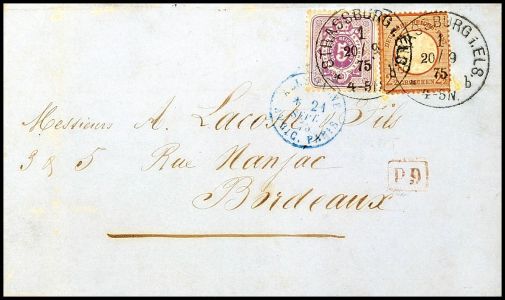 STRASSBURG i. ELS.
1
20/9
75
4-5N.
STRASSBURG i. ELS.
1
20/9
75
b
4-5N.
21
SEPT.
PARIS
Messieurs A. Lacoste & Fils
3 & 5 Rue Nanjac
Bordeaux
P.D